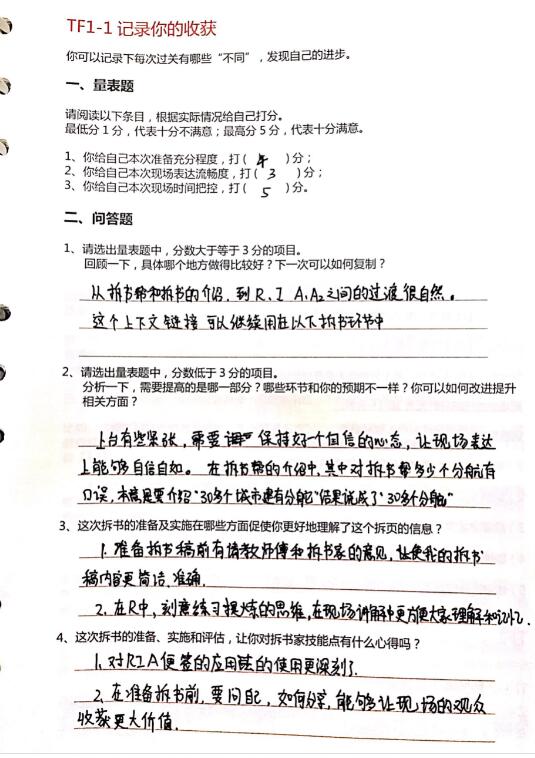 TF1-1 记录你的收获
你可以记录下每次过关有哪些“不同”，发现自己的进步。
一、量表题
请阅读以下条目，根据实际情况给自己打分。
最低分 1 分，代表十分不满意；最高分 5 分，代表十分满意。
1、你给自己本次准备充分程度，打( 4 )分；
2、你给自己本次现场表达流畅度，打( 3 )分；
3、你给自己本次现场时间把控，打( 5 )分。
二、问答题
1、请选出量表题中，分数大于等于 3 分的项目。
回顾一下，具体哪个地方做得比较好？下一次可以如何复制？
从拆书帮和拆书的介绍，到 R、I A₁A₂之间的过渡很自然。
这个上下文链接 可以继续用在以下拆书环节中
2、请选出量表题中，分数低于 3 分的项目。
分析一下，需要提高的是哪一部分？哪些环节和你的预期不一样？你可以如何改进提升
相关方面？
上台有些紧张，需要 保持好个自信的心态，让现场表达
上能够自信自如。在拆书帮的介绍中，其中对拆书帮多少个分舵有
口误，本来是要介绍“30多个城市建有分舵”但是说成了“30多个分舵”
3、这次拆书的准备及实施在哪些方面促使你更好地理解了这个拆页的信息？
1. 准备拆书稿前有请教师傅和拆书家的意见，让使我的拆书
稿内容更简洁、准确.
2. 在R中，刻意练习提炼的思维，在现场讲解中更方便大家理解和记忆.
4、这次拆书的准备、实施和评估，让你对拆书家技能点有什么心得吗？
1, 对RIA便签的应用 的使用更深刻了.
2, 在准备拆书前，要问自己，如何分享，能够让现场的观众
收获更大价值.